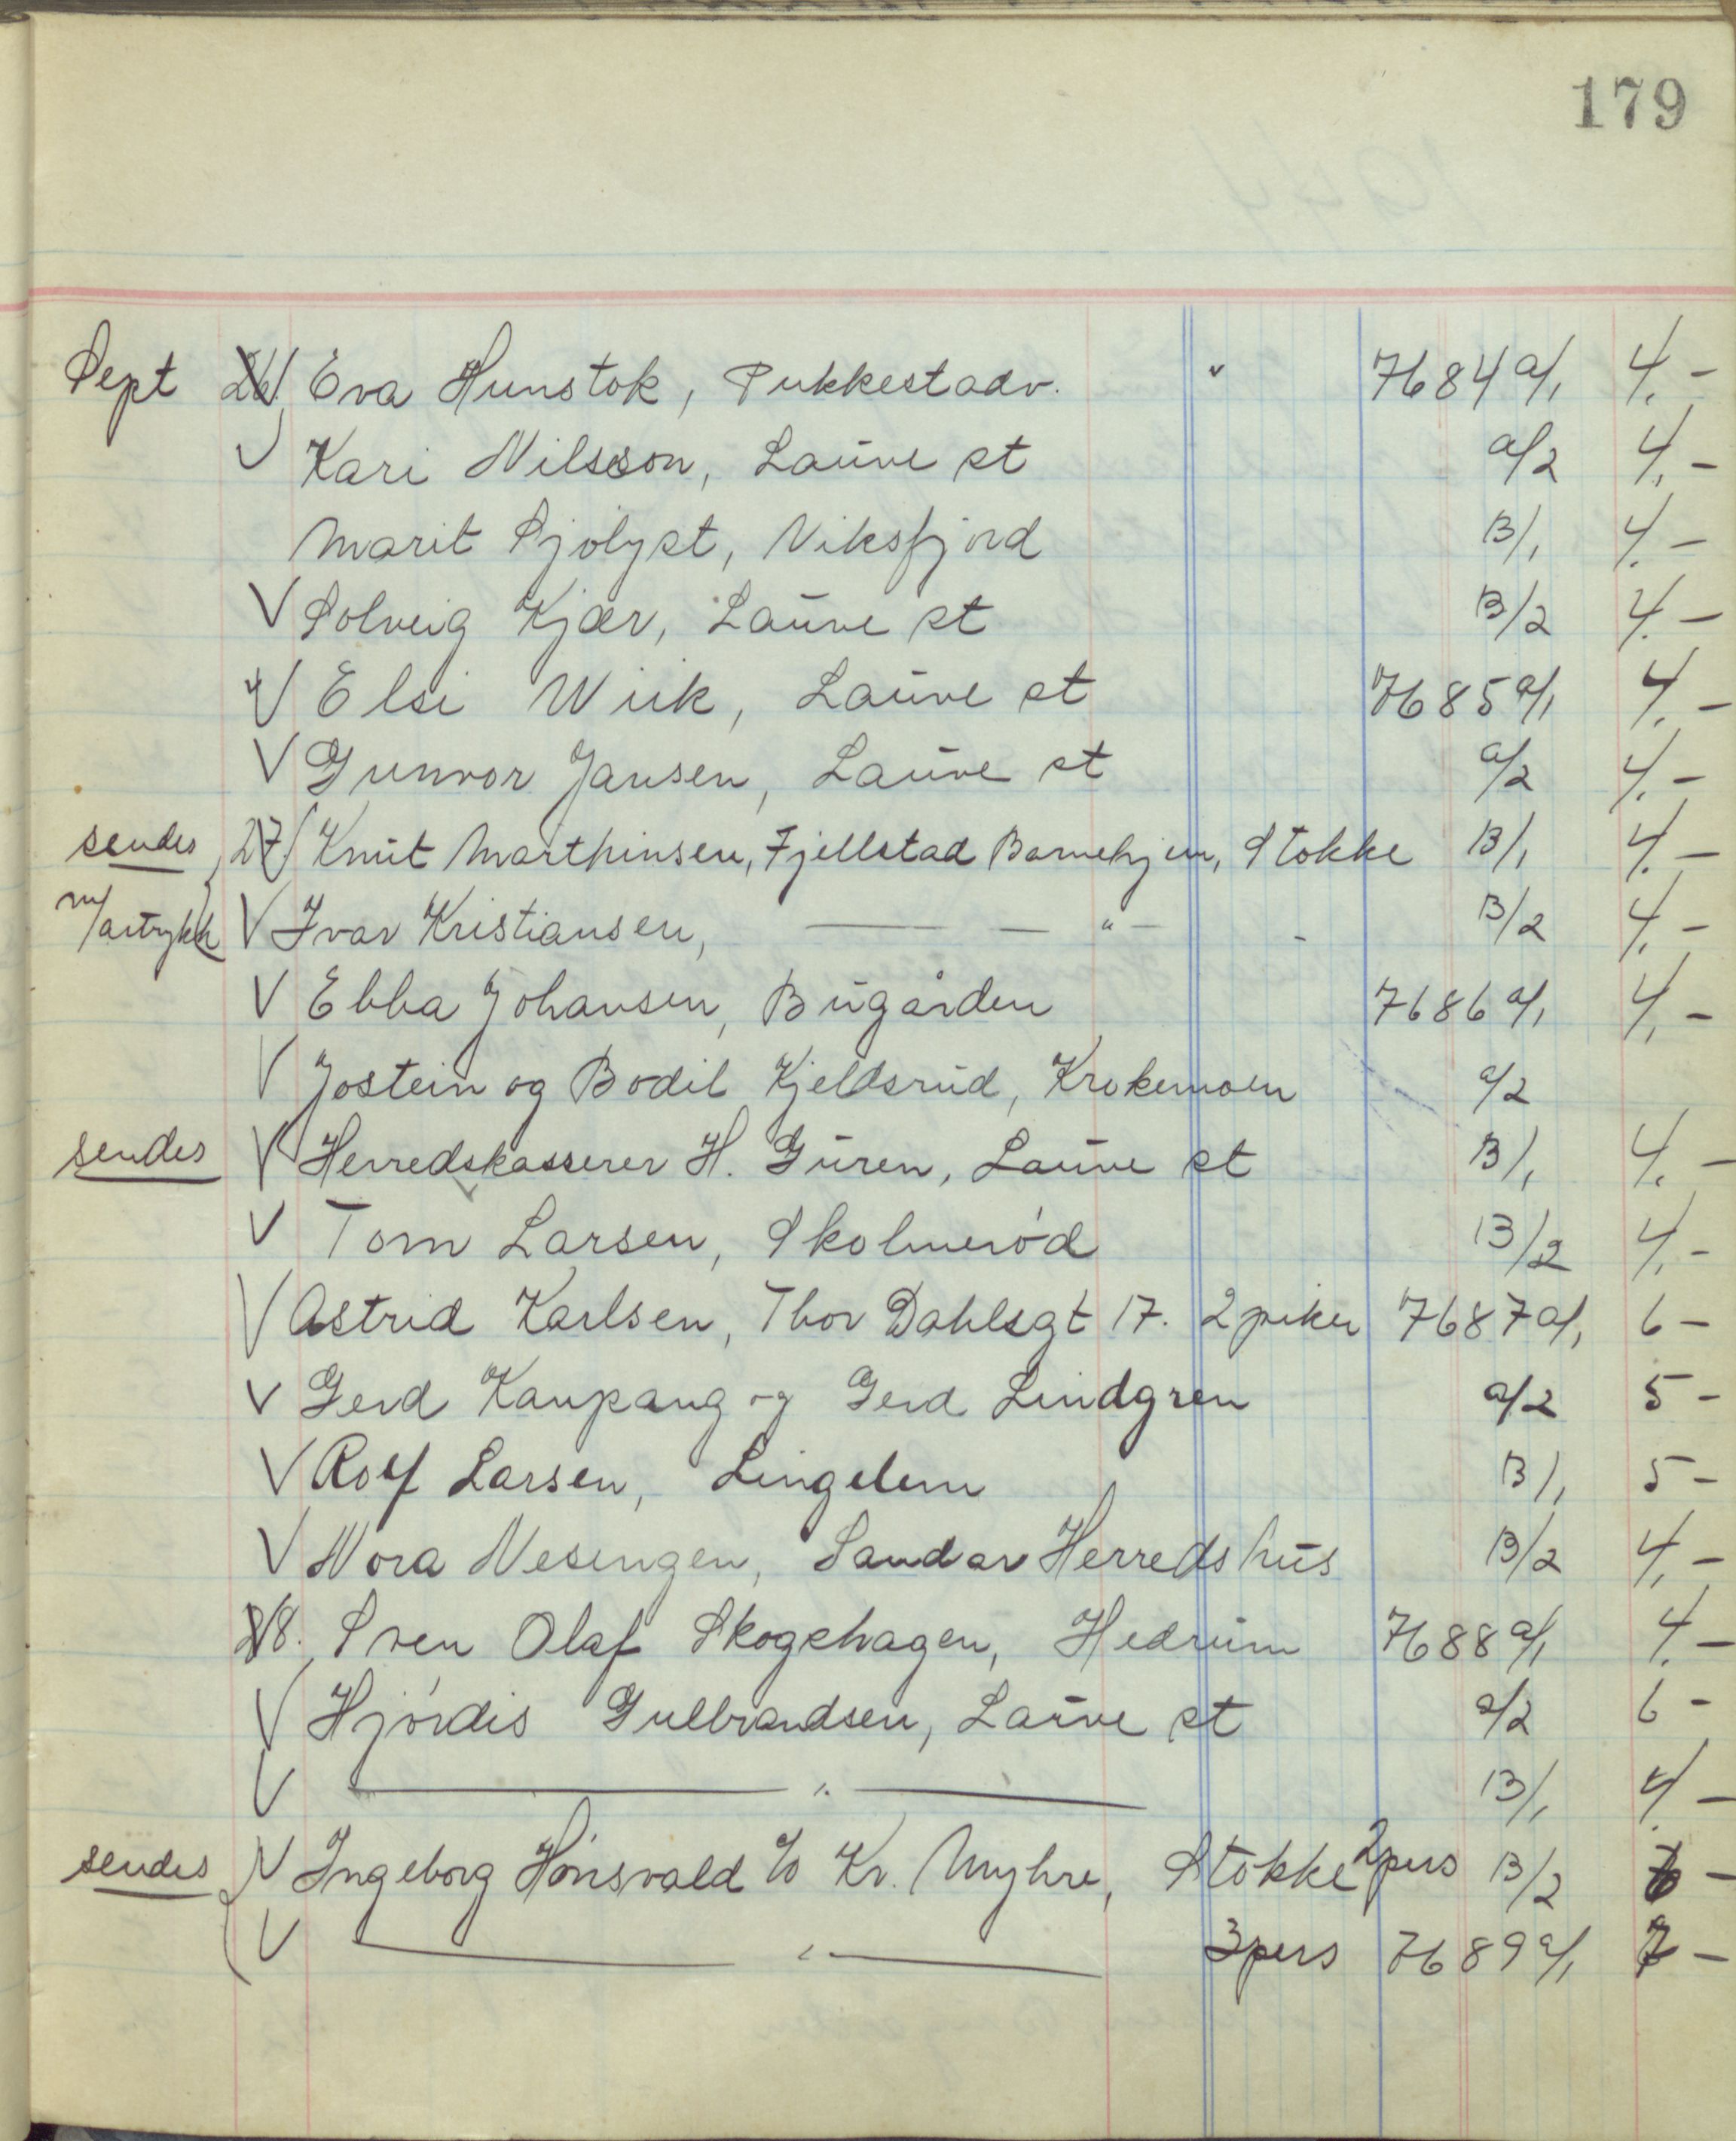 179
Sept 26/ Eva Hunstok, Pukkestadv. 7684 a/1 4,-
V Kari Nilsson, Lauve st a/2 4,-
Marit Sjølyst, Viksfjord B/1 4.-
V Solveig Kjær, Lauve st B/2 4.-
V Elsi Wiik, Lauve st 7685 a/1 4.-
V Gunvor Jansen, Lauve st a/2 4.-
sendes 27/ Knut Marthinsen, Fjellstad Barnehjem, Stokke B/1 4.-
m/avtrykk V Ivar Kristiansen, — — " — - B/2 4.-
V Ebba Johansen, Bugården 7686 a/1 4,-
V Jostein og Bodil Kjeldsrud, Krokemoen a/2
sendes V Herredskasserer H. Guren, Lauve st B/1 4.-
V Tom Larsen, Skolmerød B/2 4,-
V Astrid Karlsen, Thor Dahlsgt 17. 2 piker 7687 a/1 6 -
V Gerd Kaupang og Gerd Lindgren a/2 5 -
V Rolf Larsen, Lingelem B/1 5 -
V Nora Nesengen, Sandar Herredshus B/2 4,-
28. Sven Olaf Skogehagen, Hedrum 7688 a/1 4.-
V Hjørdis Gulbrandsen, Lauve st a/2 6 -
V — " — B/1 4 -
sendes V Ingeborg Hønsvald c/o Kr. Myhre, Stokke 2 pers B/2 6 -
V — " — 3 pers 7689 a/1 7 -